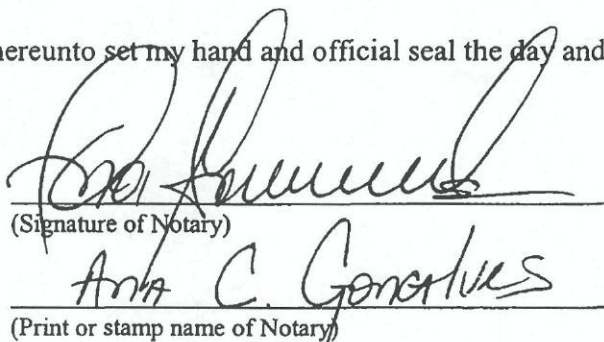 hereunto set my hand and official seal the day and
(Signature of Notary)
Ana C. Gonçalves
(Print or stamp name of Notary)